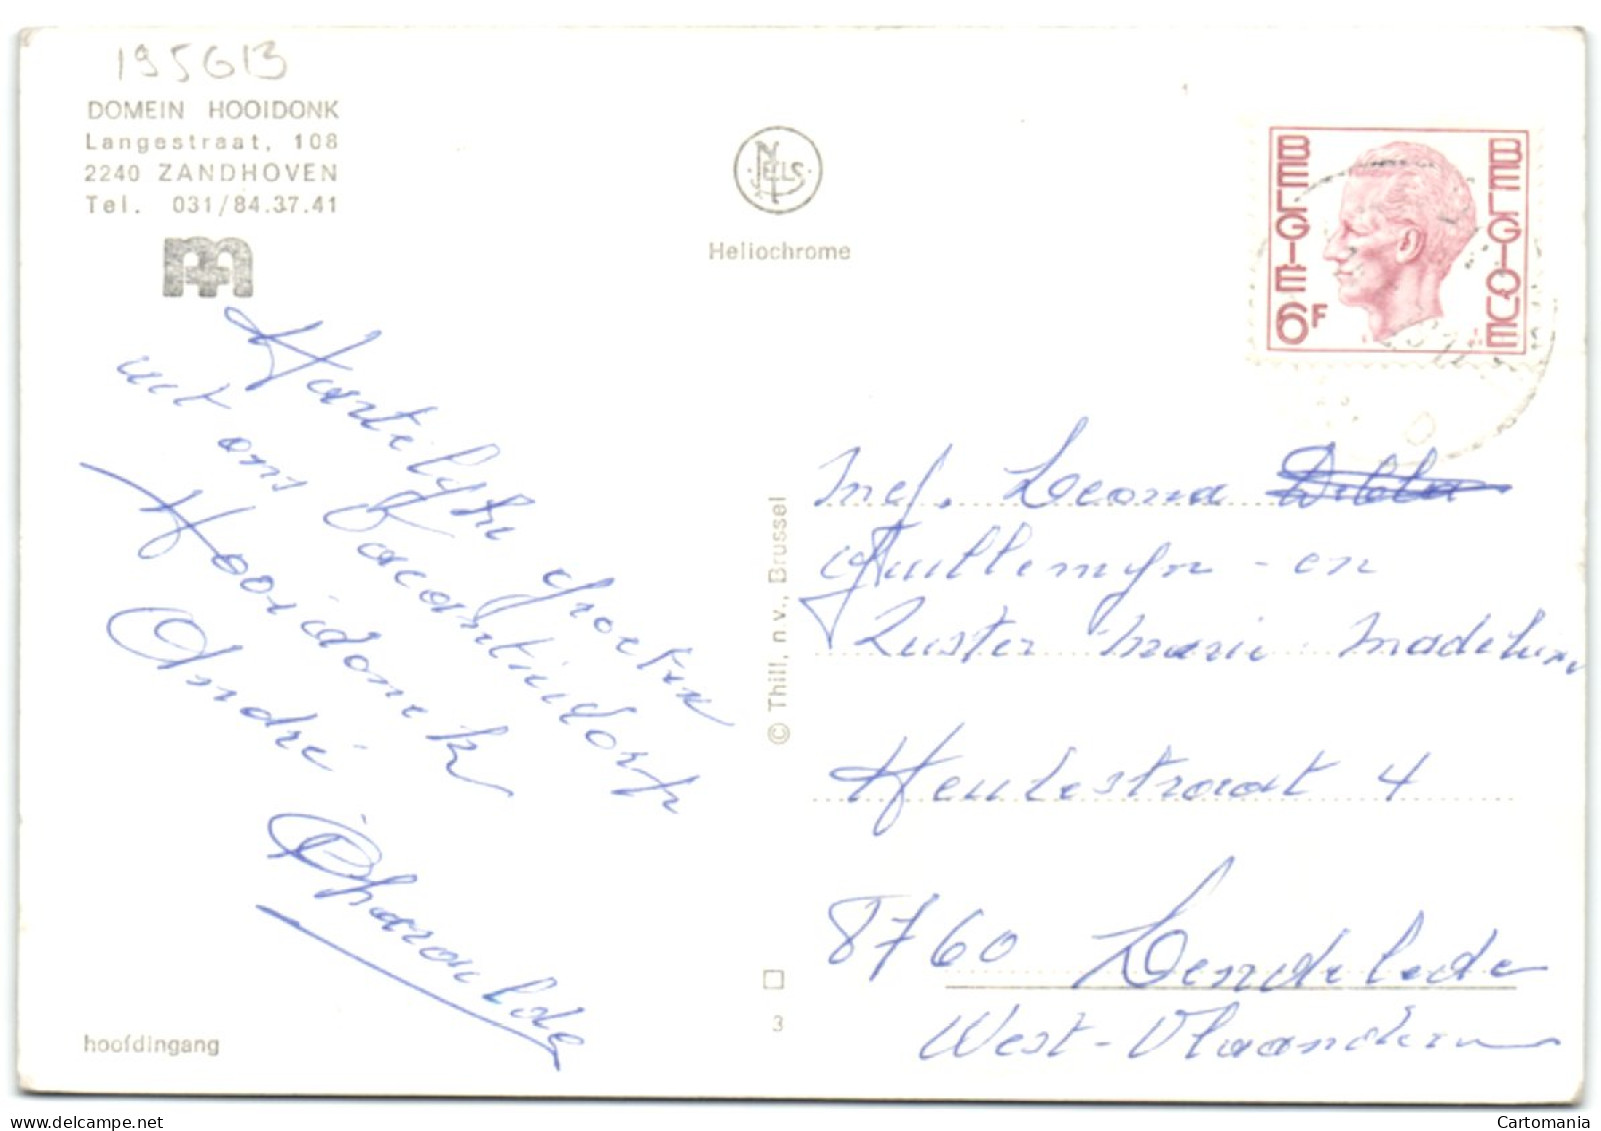 195613
DOMEIN HOOIDONK
Langestraat, 108
2240 ZANDHOVEN
Tel. 031/84.37.41
NELS
Heliochrome
BELGIË
BELGIQUE
6F
Hartelijke groeten
uit ons Vacantiedorp
Hooidonck
André
Pharaïlde
Mej. Leona
Guillemyn - en
Zuster Marie Madeleine
Heulestraat 4
8760 Lendelede
West-Vlaanderen
© Thill, n.v., Brussel
3
hoofdingang
Cartomania